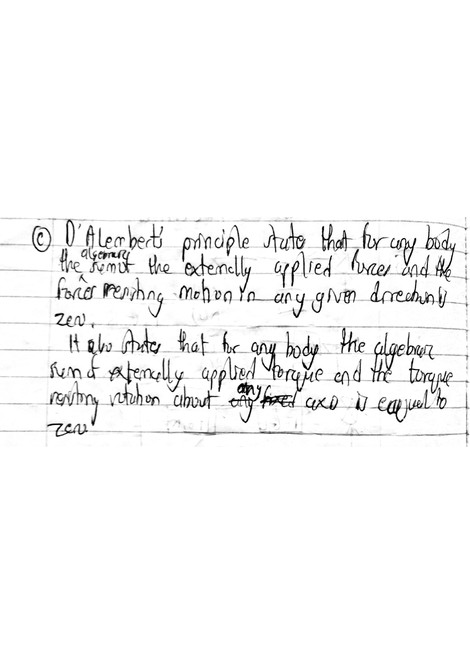 ⓒ D'Alembert's principle states that for any body
the algebraic sum of the externally applied forces and the
forces resisting motion in any given direction is
zero.
It also states that for any body the algebraic
sum of externally applied torque and the torque
resisting rotation about any axis is eaqual to
zero